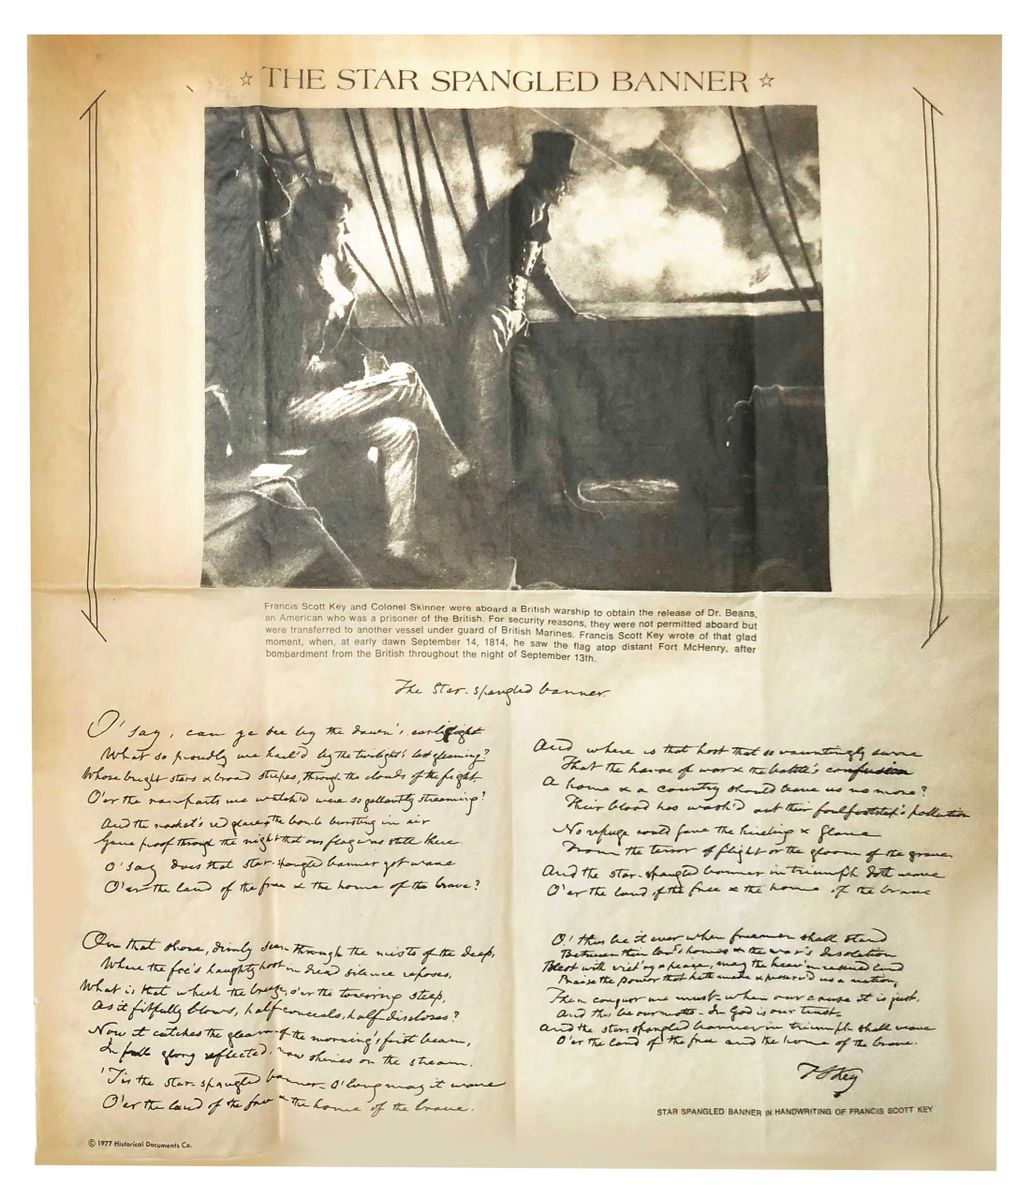 ☆ THE STAR SPANGLED BANNER ☆
Francis Scott Key and Colonel Skinner were aboard a British warship to obtain the release of Dr. Beans,
an American who was a prisoner of the British. For security reasons, they were not permitted aboard but
were transferred to another vessel under guard of British Marines. Francis Scott Key wrote of that glad
moment, when, at early dawn September 14, 1814, he saw the flag atop distant Fort McHenry, after
bombardment from the British throughout the night of September 13th.
The Star-spangled banner
O' say, can ye see by the dawn's early light
What so proudly we hail'd by the twilight's last gleaming?
Whose bright stars & broad stripes, through the clouds of the fight
O'er the ramparts we watch'd were so gallantly streaming?
And the rocket's red glare, the bomb bursting in air
Gave proof through the night that our flag was still there
O' say does that star-spangled banner yet wave
O'er the land of the free & the home of the brave?
On that shore, dimly seen through the mists of the deep,
Where the foe's haughty host in dread silence reposes,
What is that which the breeze, o'er the towering steep,
As it fitfully blows, half conceals, half discloses?
Now it catches the gleam of the morning's first beam,
In full glory reflected, now shines on the stream.
'Tis the star-spangled banner - O' long may it wave
O'er the land of the free & the home of the brave.
And where is that host that so vauntingly swore
That the havoc of war & the battle's confusion
A home & a country should leave us no more?
Their blood has wash'd out their foul footstep's pollution
No refuge could save the hireling & slave
From the terror of flight or the gloom of the grave
And the star-spangled banner in triumph doth wave
O'er the land of the free & the home of the brave
O' thus be it ever when freemen shall stand
Between their lov'd homes & the war's desolation
Blest with vict'ry & peace, may the heav'n rescued land
Praise the power that hath made & preserv'd us a nation,
Then conquer we must - when our cause it is just,
And this be our motto - In God is our trust -
And the star-spangled banner in triumph shall wave
O'er the land of the free and the home of the brave.
F S Key
STAR SPANGLED BANNER IN HANDWRITING OF FRANCIS SCOTT KEY
© 1977 Historical Documents Co.